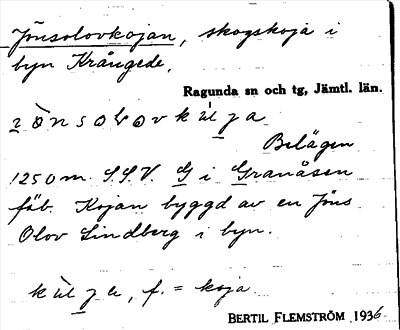 Jönsolovkojan, skogskoja i
byn Krångede.
Ragunda sn och tg, Jämtl. län.
Belägen
1250 m. S.S.V. G i Granåsen
fäb. Kojan byggd av en Jöns
Olov Lindberg i byn.
f. = koja
BERTIL FLEMSTRÖM 1936